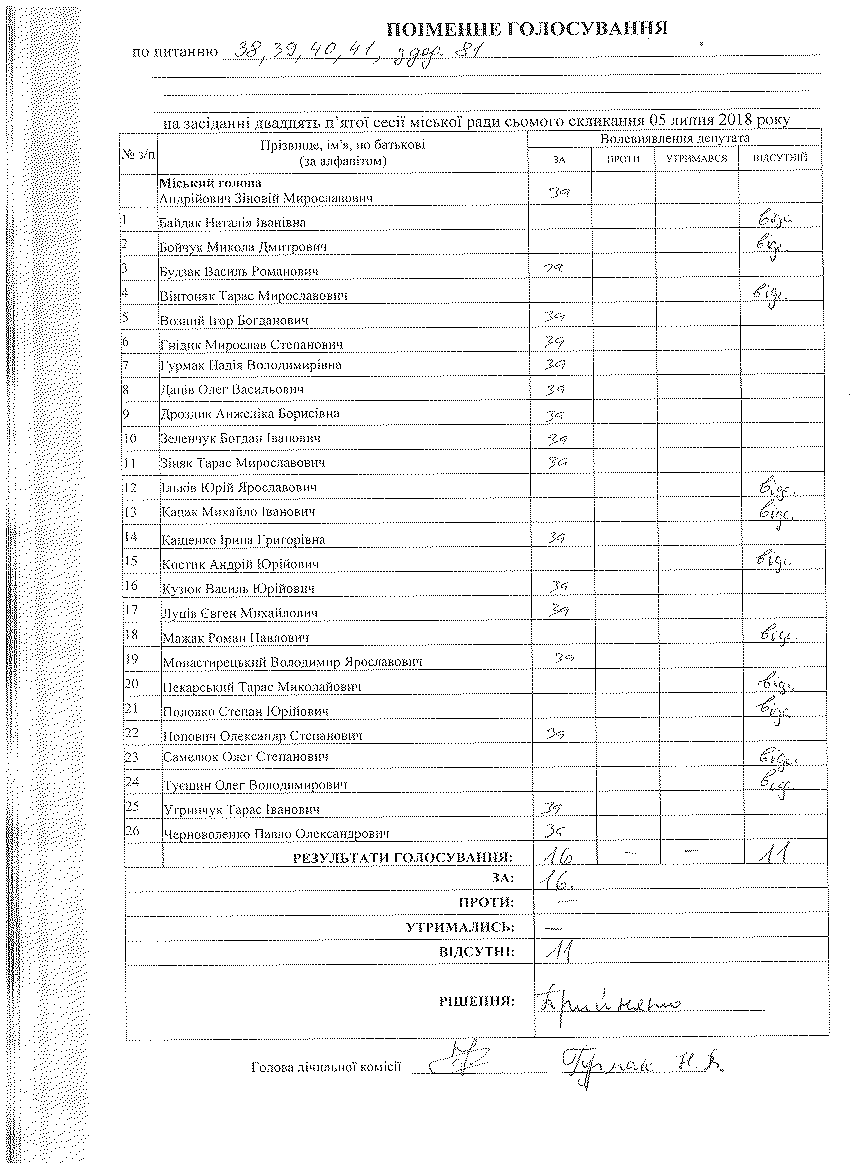 ПОІМЕННЕ ГОЛОСУВАННЯ
по питанню 38, 39, 40, 41, 81
на засіданні двадцять п'ятої сесії міської ради сьомого скликання 05 липня 2018 року
№ з/п Прізвище, ім'я, по батькові (за алфавітом) Волевиявлення депутата
ЗА ПРОТИ УТРИМАВСЯ ВІДСУТНІЙ
Міський голова
Андрійович Зіновій Мирославович за
1 Байдак Наталія Іванівна відс.
2 Бойчук Микола Дмитрович відс.
3 Будзак Василь Романович за
4 Вінтоняк Тарас Мирославович відс.
5 Возний Ігор Богданович за
6 Гнідик Мирослав Степанович за
7 Гурмак Надія Володимирівна за
8 Даців Олег Васильович за
9 Дроздик Анжеліка Борисівна за
10 Зеленчук Богдан Іванович за
11 Зіняк Тарас Мирославович за
12 Ільків Юрій Ярославович відс.
13 Кацак Михайло Іванович відс.
14 Кащенко Ірина Григорівна за
15 Костик Андрій Юрійович відс.
16 Кузюк Василь Юрійович за
17 Луців Євген Михайлович за
18 Мажак Роман Павлович відс.
19 Монастирецький Володимир Ярославович за
20 Пекарський Тарас Миколайович відс.
21 Половко Степан Юрійович відс.
22 Попович Олександр Степанович за
23 Самелюк Олег Степанович відс.
24 Туєшин Олег Володимирович відс.
25 Угринчук Тарас Іванович за
26 Черноволенко Павло Олександрович за
РЕЗУЛЬТАТИ ГОЛОСУВАННЯ: 16 — — 11
ЗА: 16.
ПРОТИ: —
УТРИМАЛИСЬ: —
ВІДСУТНІ: 11
РІШЕННЯ: Прийнято
Голова лічильної комісії Гурмак Н. В.